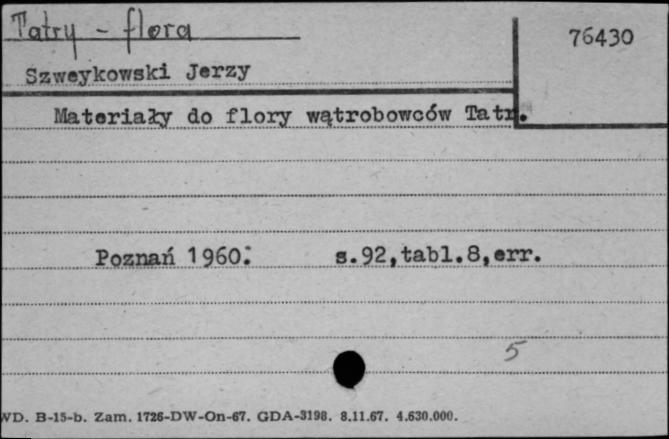 Tatry - flora
76430
Szweykowski Jerzy
Materiały do flory wątrobowców Tatr.
Poznań 1960. s.92,tabl.8,err.
5
WD. B-15-b. Zam. 1726-DW-On-67. GDA-3198. 8.11.67. 4.630.000.